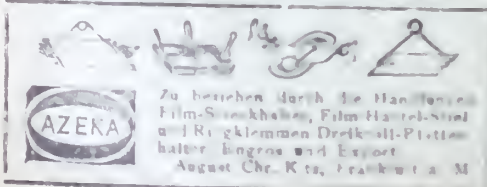 AZEKA
Zu beziehen durch die Handlungen
Film-Steckhalter, Film-Hantel-Stiel
und Ringklemmen Dreikrall-Platten-
halter Engros und Export
August Chr. Kitz, Frankfurt a M